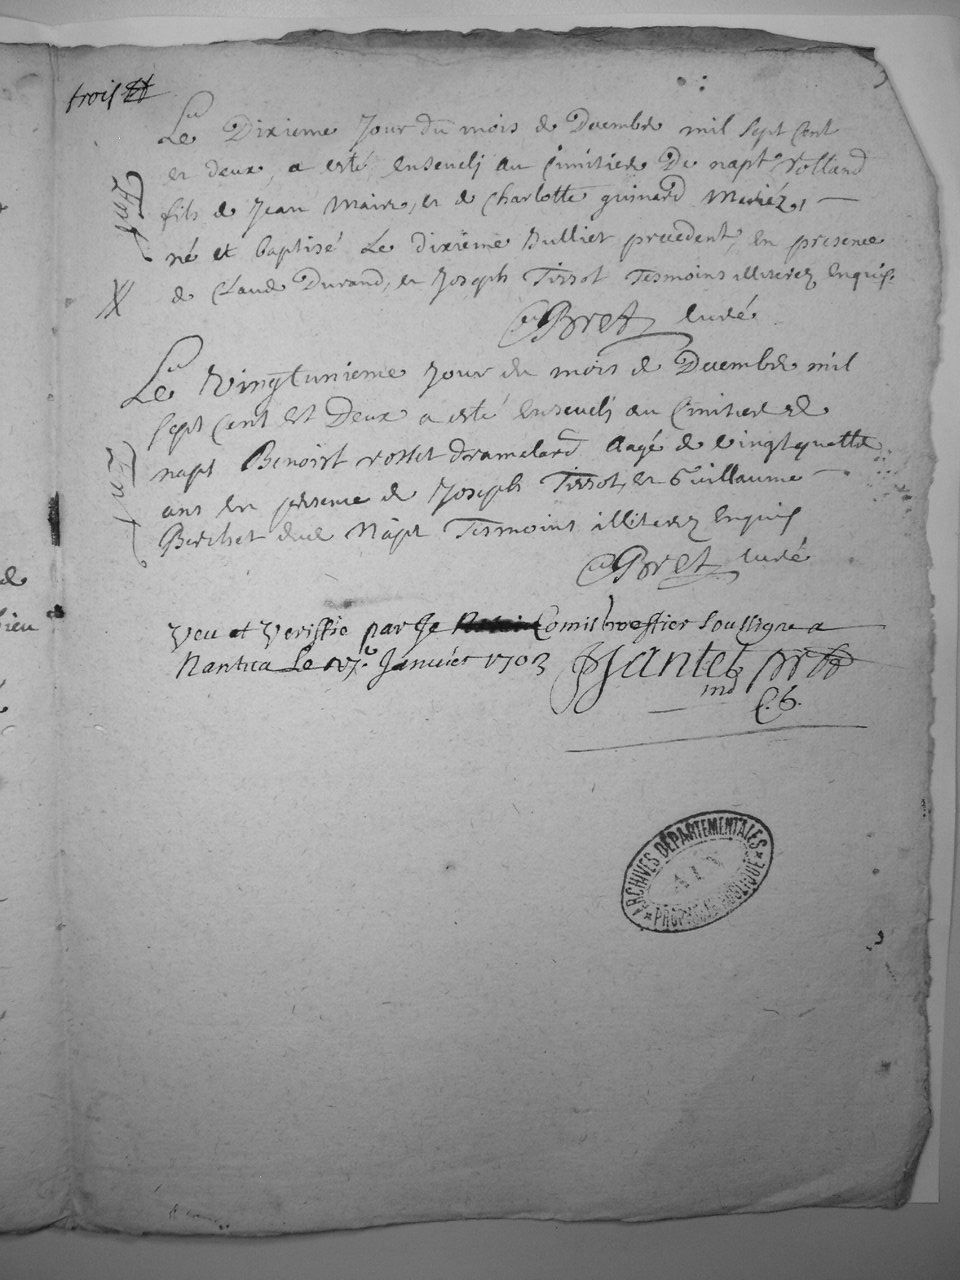 trois
Le Dixieme Jour du mois de Decembre mil sept Cent
et deux, a esté ensevely au Cimitiere De napt Rolland
fils de Jean Maire, et de Charlotte guinard Mariéz,
né et baptisé Le dixieme Juillet precedent, en presence
de Claude Durand, et Joseph Tissot Tesmoins illiterez Enquis
Bret Curé
Le Vingtunieme Jour du mois de Decembre mil
sept Cent et Deux a esté ensevely au Cimitiere de
napt Benoist rosset dramelard aagé de vingtquattre
ans en presence de Joseph Tissot, et Guillaume
Berchet de Napt Tesmoins illiterez Enquis
Bret Curé
Veu et Veriffié par Je Comis Greffier Soussigne a
Nantua Le Janvier 1703 Jantet
ARCHIVES DÉPARTEMENTALES
AIN
PROPRIÉTÉ PUBLIQUE